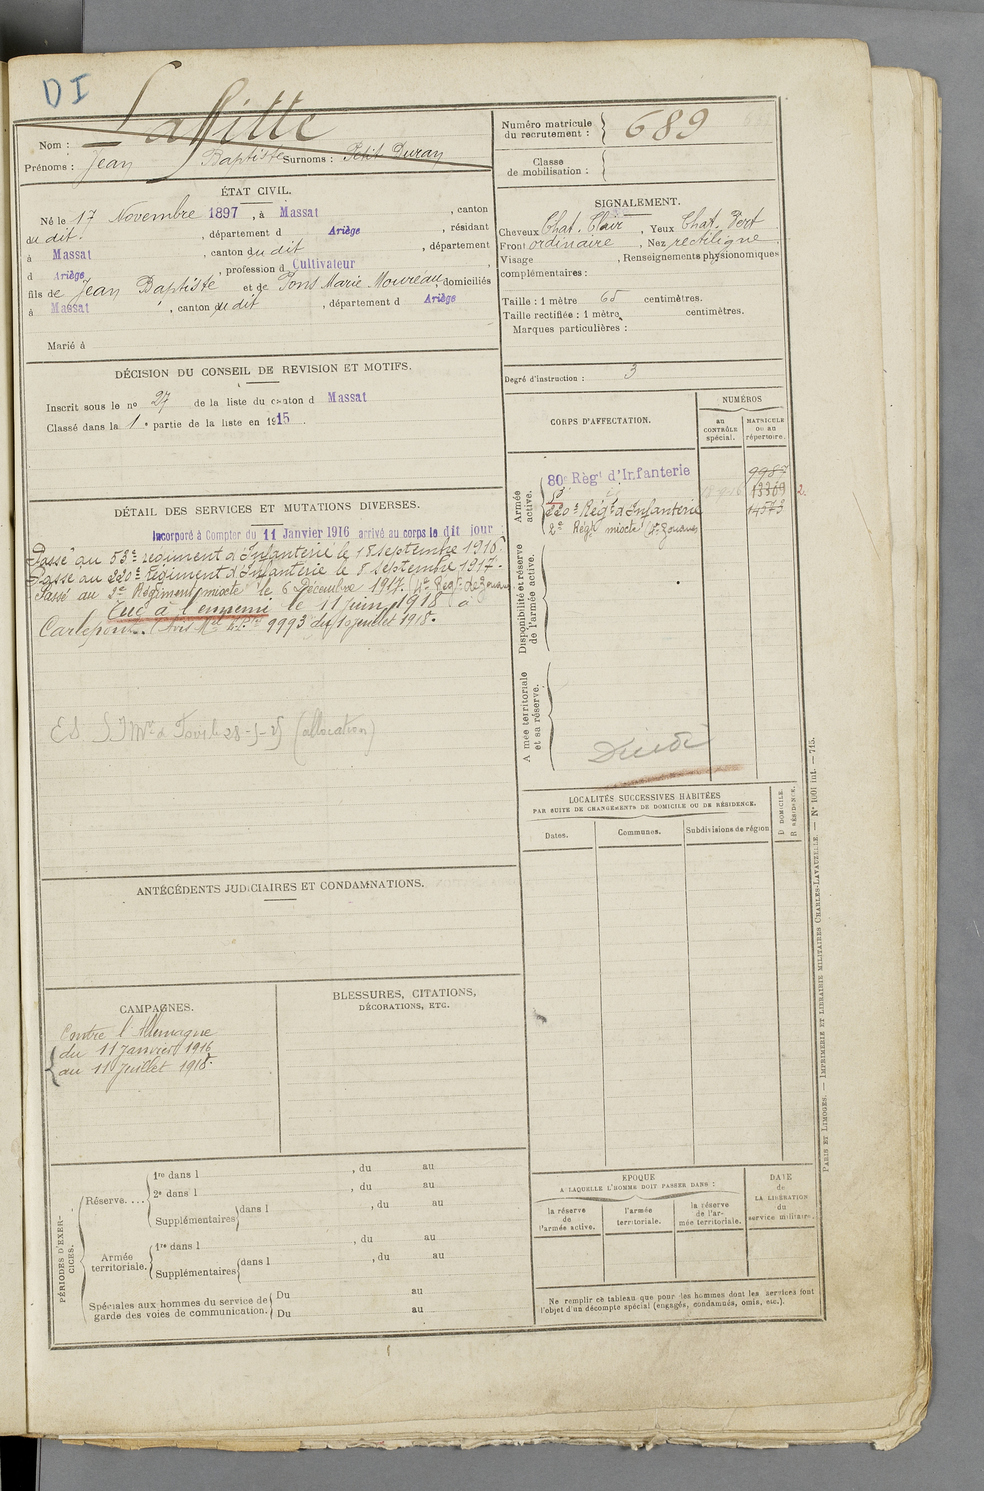 DI
Nom : Laffitte
Prénoms : Jean Baptiste Surnoms : Petit Duran
Numéro matricule du recrutement : 689
Classe de mobilisation :
ÉTAT CIVIL.
Né le 17 Novembre 1897, à Massat, canton
du dit, département d Ariège, résidant
à Massat, canton du dit, département
d Ariège, profession d Cultivateur,
fils de Jean Baptiste et de Pons Marie Moureau, domiciliés
à Massat, canton du dit, département d Ariège
Marié à
SIGNALEMENT.
Cheveux Chat. Clair, Yeux Chat. Vert
Front ordinaire, Nez rectiligne
Visage , Renseignements physionomiques
complémentaires :
Taille : 1 mètre 65 centimètres.
Taille rectifiée : 1 mètre, centimètres.
Marques particulières :
Degré d'instruction : 3
DÉCISION DU CONSEIL DE REVISION ET MOTIFS.
Inscrit sous le nº 27 de la liste du canton d Massat
Classé dans la 1e partie de la liste en 1915.
CORPS D'AFFECTATION.
NUMÉROS
au CONTRÔLE spécial.
MATRICULE ou au répertoire.
Armée active.
80e Régt d'Infanterie 9987
53 13369 2.
220e Régt d'Infanterie 14573
2e Régt mixte (4e Zouaves
Disponibilité et réserve de l'armée active.
A mée territoriale et sa réserve.
Décédé
DÉTAIL DES SERVICES ET MUTATIONS DIVERSES.
Incorporé à Compter du 11 Janvier 1916 arrivé au corps le dit jour
Passé au 53e régiment d'Infanterie le 18 septembre 1916.
Passé au 220e régiment d'Infanterie le 8 septembre 1917.
Passé au 2e Régiment mixte le 6 Décembre 1917. (4e Régt. de Zouaves
Tué à l'ennemi le 11 juin 1918 à
Carlepont. (Avis Mel 9993 du 10 juillet 1918.
28-5-25 (allocation)
LOCALITÉS SUCCESSIVES HABITÉES
PAR SUITE DE CHANGEMENTS DE DOMICILE OU DE RÉSIDENCE.
Dates.
Communes.
Subdivisions de région
D DOMICILE.
R RÉSIDENCE.
ANTÉCÉDENTS JUDICIAIRES ET CONDAMNATIONS.
CAMPAGNES.
Contre l'Allemagne
du 11 janvier 1916
au 11 Juillet 1918.
BLESSURES, CITATIONS,
DÉCORATIONS, ETC.
PÉRIODES D'EXERCICES.
Réserve....
1re dans l , du au
2e dans l , du au
Supplémentaires dans l , du au
Armée territoriale.
1re dans l , du au
Supplémentaires dans l , du au
Spéciales aux hommes du service de garde des voies de communication.
Du au
Du au
EPOQUE
A LAQUELLE L'HOMME DOIT PASSER DANS :
la réserve de l'armée active.
l'armée territoriale.
la réserve de l'armée territoriale.
DATE de LA LIBÉRATION du service militaire.
Ne remplir ce tableau que pour les hommes dont les services font
l'objet d'un décompte spécial (engagés, condamnés, omis, etc.).
PARIS ET LIMOGES. — IMPRIMERIE ET LIBRAIRIE MILITAIRES CHARLES-LAVAUZELLE. — Nº 1601 int. — 715.